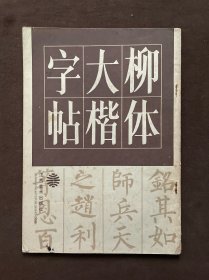 柳体
大楷
字帖
銘其如
師兵天
之趙利
月恩百